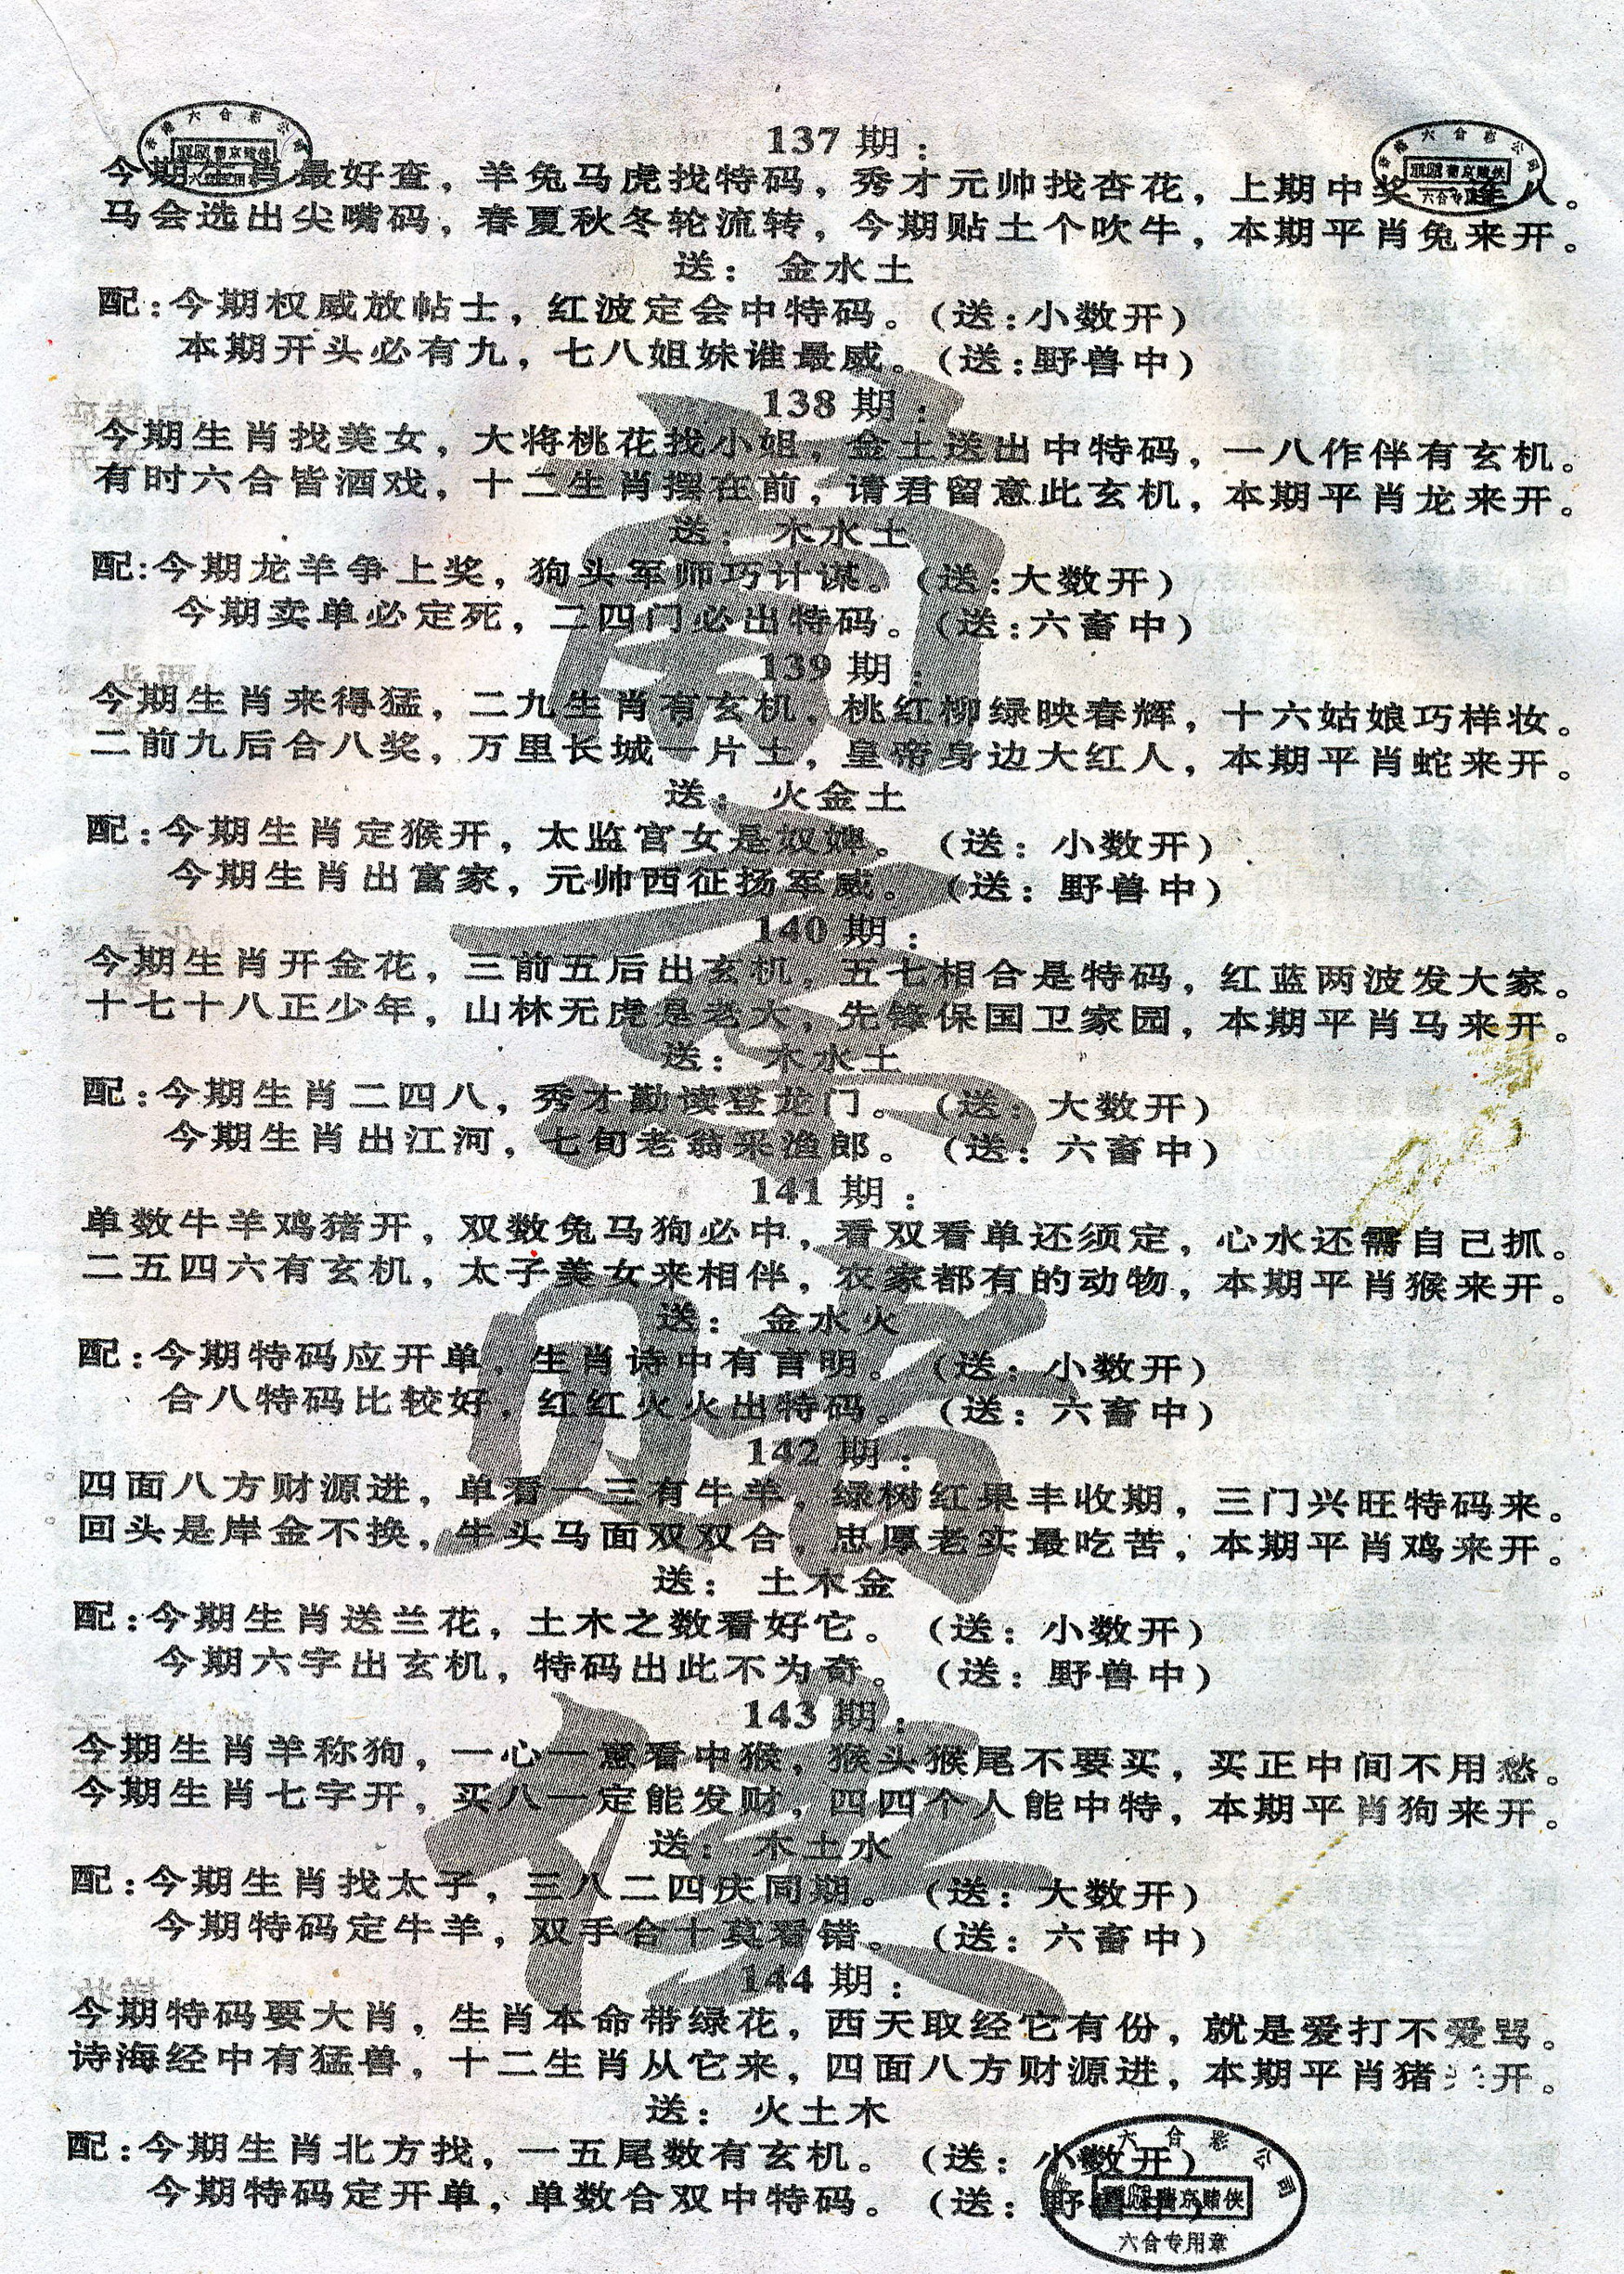 137期：
今期生肖最好查，羊兔马虎找特码，秀才元帅找杏花，上期中奖 人。
马会选出尖嘴码，春夏秋冬轮流转，今期贴士个吹牛，本期平肖兔来开。
送：金水土
配：今期权威放帖士，红波定会中特码。（送：小数开）
本期开头必有九，七八姐妹谁最威。（送：野兽中）
138期：
今期生肖找美女，大将桃花找小姐，金土送出中特码，一八作伴有玄机。
有时六合皆酒戏，十二生肖摆在前，请君留意此玄机，本期平肖龙来开。
送：木水土
配：今期龙羊争上奖，狗头军师巧计谋。（送：大数开）
今期卖单必定死，二四门必出特码。（送：六畜中）
139期：
今期生肖来得猛，二九生肖有玄机，桃红柳绿映春辉，十六姑娘巧样妆。
二前九后合八奖，万里长城一片土，皇帝身边大红人，本期平肖蛇来开。
送：火金土
配：今期生肖定猴开，太监宫女是奴婢。（送：小数开）
今期生肖出富家，元帅西征扬军威。（送：野兽中）
140期：
今期生肖开金花，三前五后出玄机，五七相合是特码，红蓝两波发大家。
十七十八正少年，山林无虎是老大，先锋保国卫家园，本期平肖马来开。
送：木水土
配：今期生肖二四八，秀才勤读登龙门。（送：大数开）
今期生肖出江河，七旬老翁采渔郎。（送：六畜中）
141期：
单数牛羊鸡猪开，双数兔马狗必中，看双看单还须定，心水还需自己抓。
二五四六有玄机，太子美女来相伴，农家都有的动物，本期平肖猴来开。
送：金水火
配：今期特码应开单，生肖诗中有言明。（送：小数开）
合八特码比较好，红红火火出特码。（送：六畜中）
142期：
四面八方财源进，单看一三有牛羊，绿树红果丰收期，三门兴旺特码来。
回头是岸金不换，牛头马面双双合，忠厚老实最吃苦，本期平肖鸡来开。
送：土木金
配：今期生肖送兰花，土木之数看好它。（送：小数开）
今期六字出玄机，特码出此不为奇。（送：野兽中）
143期：
今期生肖羊称狗，一心一意看中猴，猴头猴尾不要买，买正中间不用愁。
今期生肖七字开，买八一定能发财，四四个人能中特，本期平肖狗来开。
送：木土水
配：今期生肖找太子，三八二四庆同期。（送：大数开）
今期特码定牛羊，双手合十莫看错。（送：六畜中）
144期：
今期特码要大肖，生肖本命带绿花，西天取经它有份，就是爱打不爱骂。
诗海经中有猛兽，十二生肖从它来，四面八方财源进，本期平肖猪 开。
送：火土木
配：今期生肖北方找，一五尾数有玄机。（送：小数开）
今期特码定开单，单数合双中特码。（送：野兽中）
六合彩公司
京赌侠
六合专用章